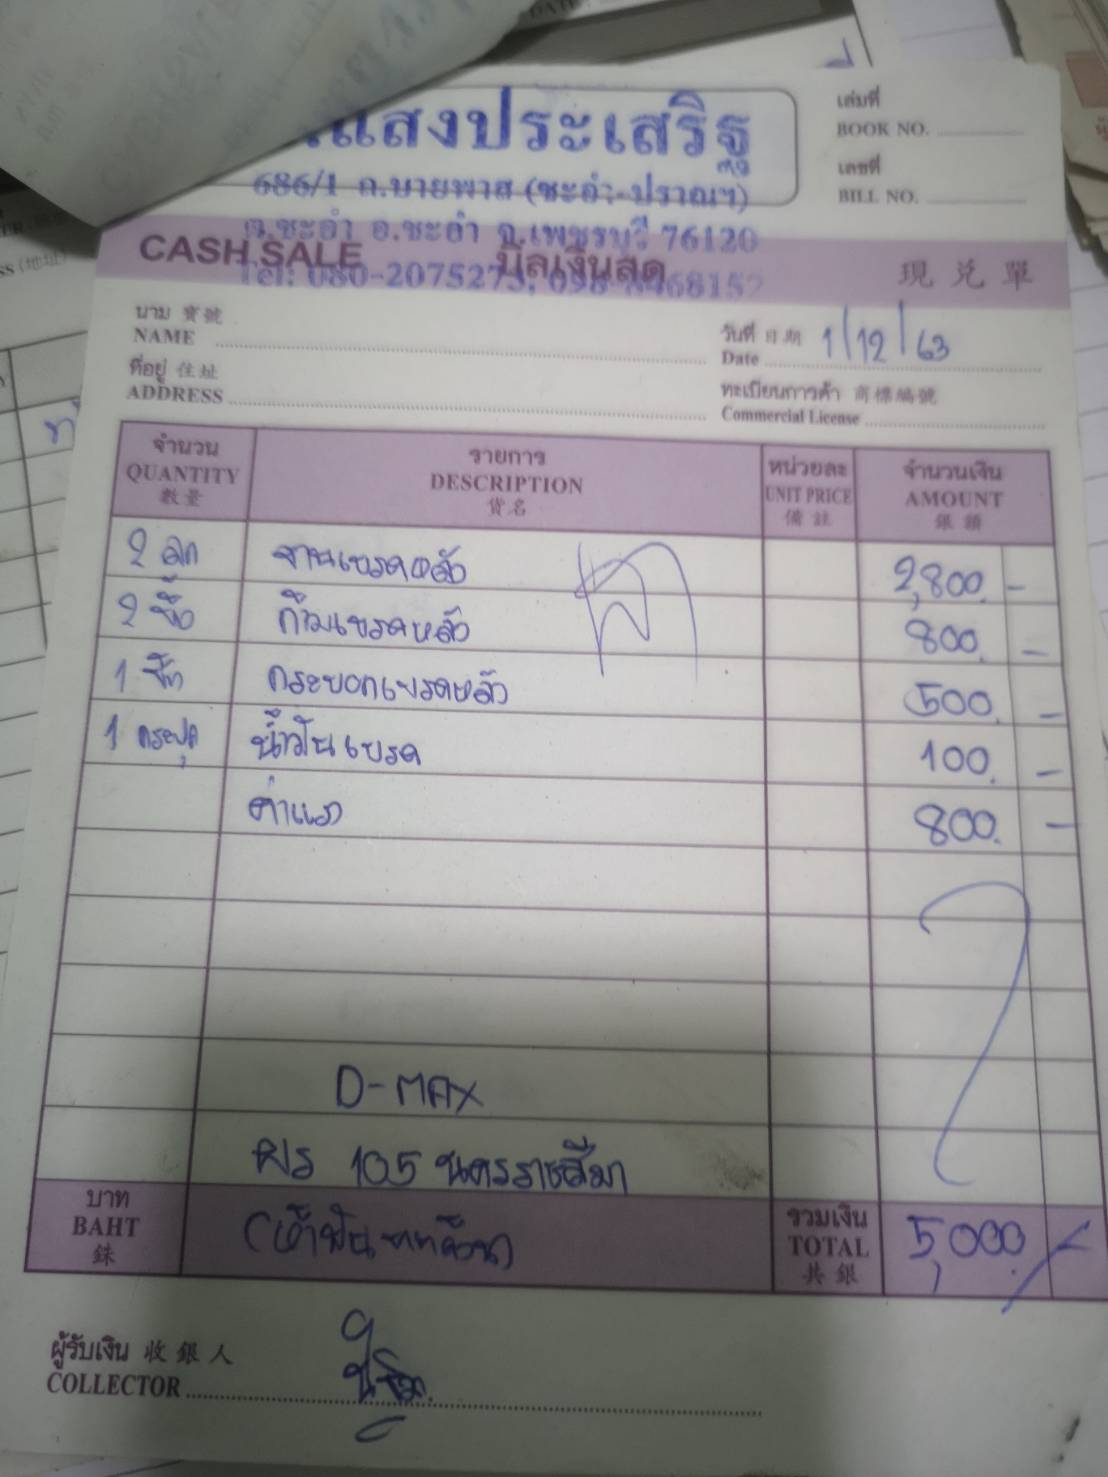 แสงประเสริฐ
686/1 ถ.บายพาส (ชะอำ-ปราณฯ)
อ.ชะอำ จ.เพชรบุรี 76120
Tel: 080-2075275,
เล่มที่
BOOK NO.
เลขที่
BILL NO.
CASH SALE บิลเงินสด 現兌單
นาม 寶號
NAME
วันที่ 日期 1/12/63
Date
ที่อยู่ 住址
ADDRESS
ทะเบียนการค้า 商標編號
Commercial License
จำนวน รายการ หน่วยละ จำนวนเงิน
QUANTITY DESCRIPTION UNIT PRICE AMOUNT
數量 貨名 備註 銀額
2 ลูก จานเบรคหลัง 2,800.-
2 ก้ามเบรคหลัง 800.-
1 กระบอกเบรคหลัง 500.-
1 กระปุก น้ำมันเบรค 100.-
ค่าแรง 800.-
D-MAX
ผร 105 นครราชสีมา
บาท
BAHT
銖
รวมเงิน
TOTAL
共銀
5,000.-
ผู้รับเงิน 收銀人
COLLECTOR